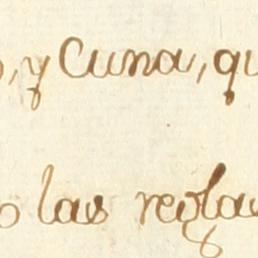 , y Cuna, qu
o las reglas